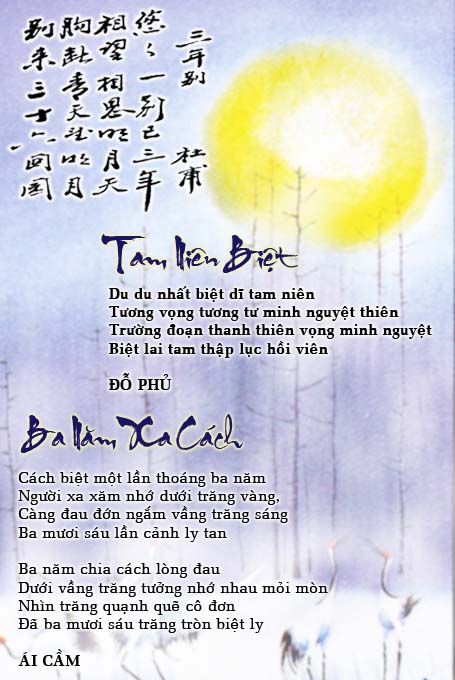 三年别 杜甫
悠々一别已三年
相望相思明月天
腸断青天望明月
别来三十六回圓
Tam Niên Biệt
Du du nhất biệt dĩ tam niên
Tương vọng tương tư minh nguyệt thiên
Trường đoạn thanh thiên vọng minh nguyệt
Biệt lai tam thập lục hồi viên
ĐỖ PHỦ
Ba Năm Xa Cách
Cách biệt một lần thoáng ba năm
Người xa xăm nhớ dưới trăng vàng,
Càng đau đớn ngắm vầng trăng sáng
Ba mươi sáu lần cảnh ly tan
Ba năm chia cách lòng đau
Dưới vầng trăng tưởng nhớ nhau mỏi mòn
Nhìn trăng quạnh quẽ cô đơn
Đã ba mươi sáu trăng tròn biệt ly
ÁI CẦM